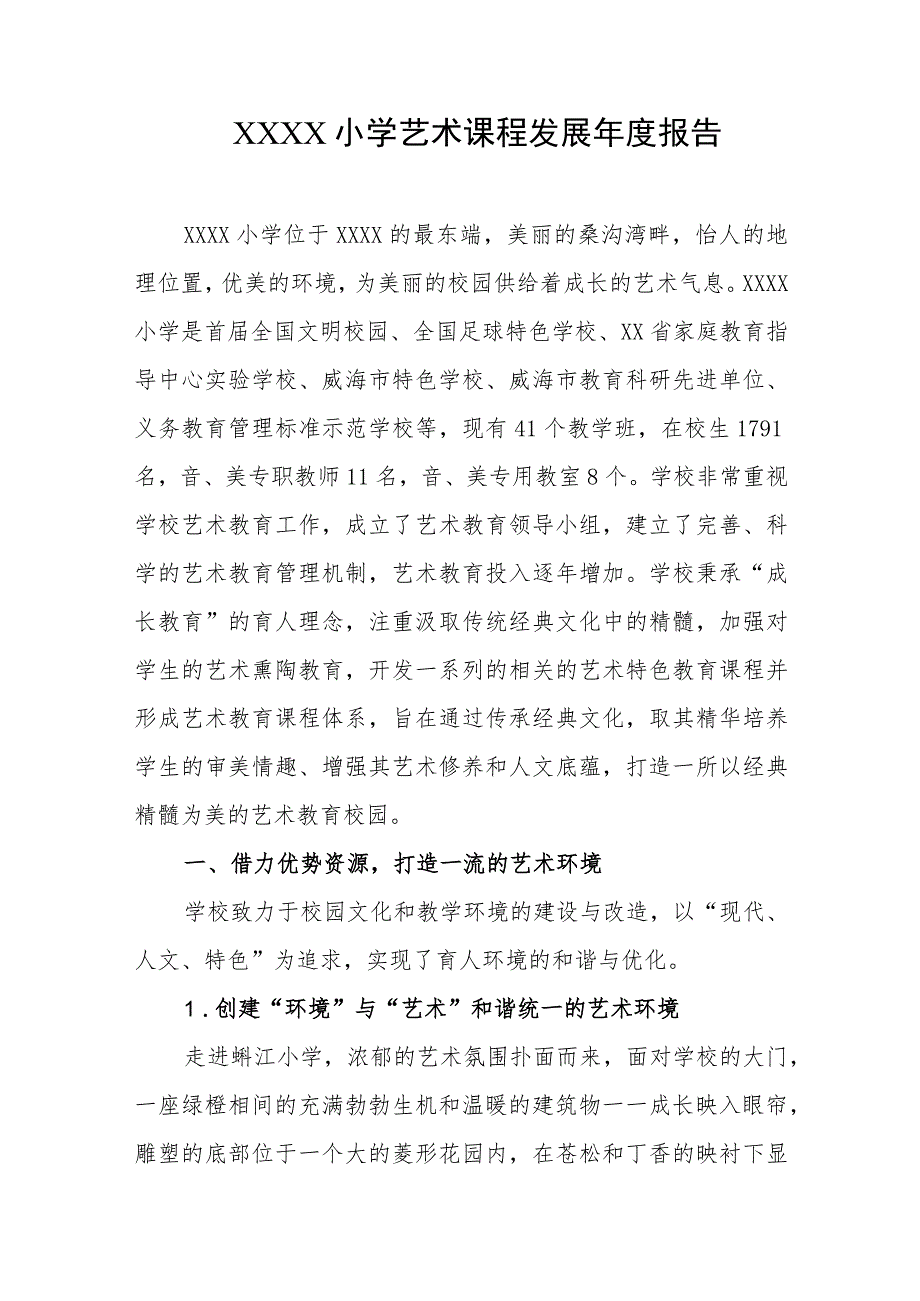 XXXX 小学艺术课程发展年度报告
XXXX 小学位于 XXXX 的最东端，美丽的桑沟湾畔，怡人的地
理位置，优美的环境，为美丽的校园供给着成长的艺术气息。XXXX
小学是首届全国文明校园、全国足球特色学校、XX 省家庭教育指
导中心实验学校、威海市特色学校、威海市教育科研先进单位、
义务教育管理标准示范学校等，现有 41 个教学班，在校生 1791
名，音、美专职教师 11 名，音、美专用教室 8 个。学校非常重视
学校艺术教育工作，成立了艺术教育领导小组，建立了完善、科
学的艺术教育管理机制，艺术教育投入逐年增加。学校秉承“成
长教育”的育人理念，注重汲取传统经典文化中的精髓，加强对
学生的艺术熏陶教育，开发一系列的相关的艺术特色教育课程并
形成艺术教育课程体系，旨在通过传承经典文化，取其精华培养
学生的审美情趣、增强其艺术修养和人文底蕴，打造一所以经典
精髓为美的艺术教育校园。
一、借力优势资源，打造一流的艺术环境
学校致力于校园文化和教学环境的建设与改造，以“现代、
人文、特色”为追求，实现了育人环境的和谐与优化。
1 .创建“环境”与“艺术”和谐统一的艺术环境
走进蝌江小学，浓郁的艺术氛围扑面而来，面对学校的大门，
一座绿橙相间的充满勃勃生机和温暖的建筑物一一成长映入眼帘，
雕塑的底部位于一个大的菱形花园内，在苍松和丁香的映衬下显